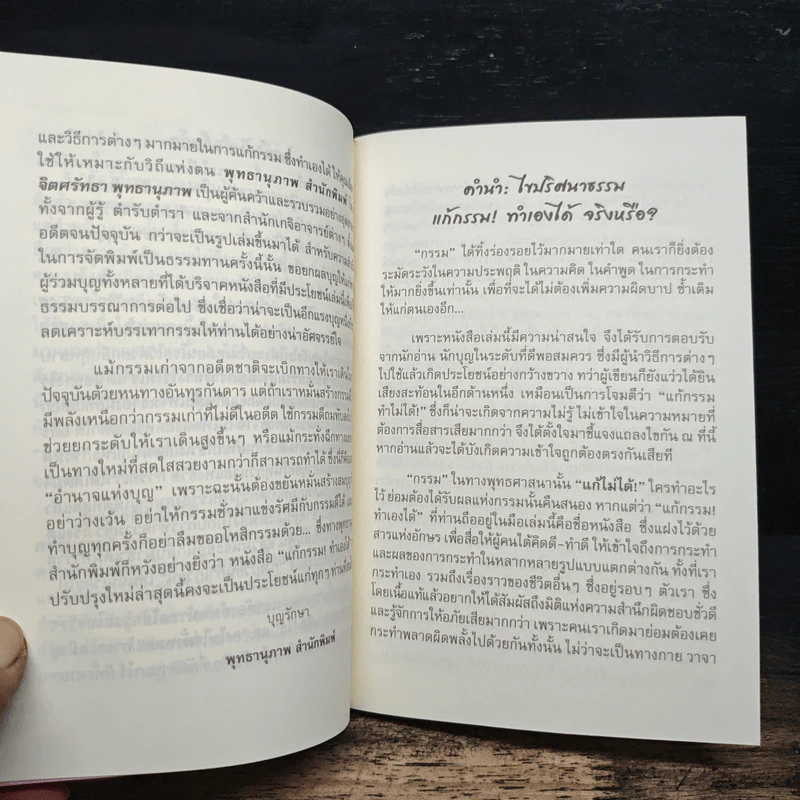 และวิธีการต่างๆ มากมายในการแก้กรรม ซึ่งทำเองได้
ใช้ให้เหมาะกับวิถีแห่งตน พุทธานุภาพ สำนักพิมพ์
จิตศรัทธา พุทธานุภาพ เป็นผู้ค้นคว้าและรวบรวมอย่าง
ทั้งจากผู้รู้ ตำรับตำรา และจากสำนักเกจิอาจารย์ต่างๆ
อดีตจนปัจจุบัน กว่าจะเป็นรูปเล่มขึ้นมาได้ สำหรับความ
ในการจัดพิมพ์เป็นธรรมทานครั้งนี้นั้น ขอยกผลบุญให้แก่
ผู้ร่วมบุญทั้งหลายที่ได้บริจาคหนังสือที่มีประโยชน์เล่มนี้
ธรรมบรรณาการต่อไป ซึ่งเชื่อว่าน่าจะเป็นอีกแรงบุญหนึ่ง
ลดเคราะห์บรรเทากรรมให้ท่านได้อย่างน่าอัศจรรย์ใจ
แม้กรรมเก่าจากอดีตชาติจะเบิกทางให้เรา
ปัจจุบันด้วยหนทางอันทุรกันดาร แต่ถ้าเราหมั่นสร้างกรรม
มีพลังเหนือกว่ากรรมเก่าที่ไม่ดีในอดีต ใช้กรรมดีถม
ช่วยยกระดับให้เราเดินสูงขึ้นๆ หรือแม้กระทั่งฉีกทาง
เป็นทางใหม่ที่สดใสสวยงามกว่าก็สามารถทำได้ ซึ่งนี่ก็คือ
“อำนาจแห่งบุญ” เพราะฉะนั้นต้องขยันหมั่นสร้างสม
อย่าว่างเว้น อย่าให้กรรมชั่วมาแข่งรัศมีกับกรรมดีได้
ทำบุญทุกครั้งก็อย่าลืมขออโหสิกรรมด้วย... ซึ่งทางพุทธา
สำนักพิมพ์ก็หวังอย่างยิ่งว่า หนังสือ “แก้กรรม! ทำเองได้
ปรับปรุงใหม่ล่าสุดนี้คงจะเป็นประโยชน์แก่ทุกๆ ท่าน
บุญรักษา
พุทธานุภาพ สำนักพิมพ์
คำนำ: ไขปริศนาธรรม
แก้กรรม! ทำเองได้ จริงหรือ?
“กรรม” ได้ทิ้งร่องรอยไว้มากมายเท่าใด คนเราก็ยิ่งต้อง
ระมัดระวังในความประพฤติ ในความคิด ในคำพูด ในการกระทำ
ให้มากยิ่งขึ้นเท่านั้น เพื่อที่จะได้ไม่ต้องเพิ่มความผิดบาป ซ้ำเติม
ให้แก่ตนเองอีก...
เพราะหนังสือเล่มนี้มีความน่าสนใจ จึงได้รับการตอบรับ
จากนักอ่าน นักบุญในระดับที่ดีพอสมควร ซึ่งมีผู้นำวิธีการต่างๆ
ไปใช้แล้วเกิดประโยชน์อย่างกว้างขวาง ทว่าผู้เขียนก็ยังแว่วได้ยิน
เสียงสะท้อนในอีกด้านหนึ่ง เหมือนเป็นการโจมตีว่า “แก้กรรม
ทำไม่ได้!” ซึ่งก็น่าจะเกิดจากความไม่รู้ ไม่เข้าใจในความหมายที่
ต้องการสื่อสารเสียมากกว่า จึงได้ตั้งใจมาชี้แจงแถลงไขกัน ณ ที่นี้
หากอ่านแล้วจะได้บังเกิดความเข้าใจถูกต้องตรงกันเสียที
“กรรม” ในทางพุทธศาสนานั้น “แก้ไม่ได้!” ใครทำอะไร
ไว้ ย่อมต้องได้รับผลแห่งกรรมนั้นคืนสนอง หากแต่ว่า “แก้กรรม!
ทำเองได้” ที่ท่านถืออยู่ในมือเล่มนี้คือชื่อหนังสือ ซึ่งแฝงไว้ด้วย
สารแห่งอักษร เพื่อสื่อให้ผู้คนได้คิดดี-ทำดี ให้เข้าใจถึงการกระทำ
และผลของการกระทำในหลากหลายรูปแบบแตกต่างกัน ทั้งที่เรา
กระทำเอง รวมถึงเรื่องราวของชีวิตอื่นๆ ซึ่งอยู่รอบๆ ตัวเรา ซึ่ง
โดยเนื้อแท้แล้วอยากให้ได้สัมผัสถึงมิติแห่งความสำนึกผิดชอบชั่วดี
และรู้จักการให้อภัยเสียมากกว่า เพราะคนเราเกิดมาย่อมต้องเคย
กระทำพลาดผิดพลั้งไปด้วยกันทั้งนั้น ไม่ว่าจะเป็นทางกาย วาจา